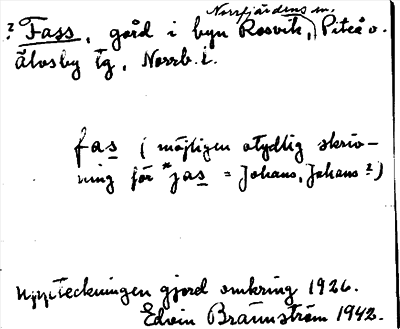 Norrfjärdens sn.
? Fass, gård i byn Rosvik, Piteå o.
Älvsby tg, Norrb. l.
fas (möjligen otydlig skriv-
ning för *jas = Johans, Johans?)
Uppteckningen gjord omkring 1926.
Edvin Brännström 1942.